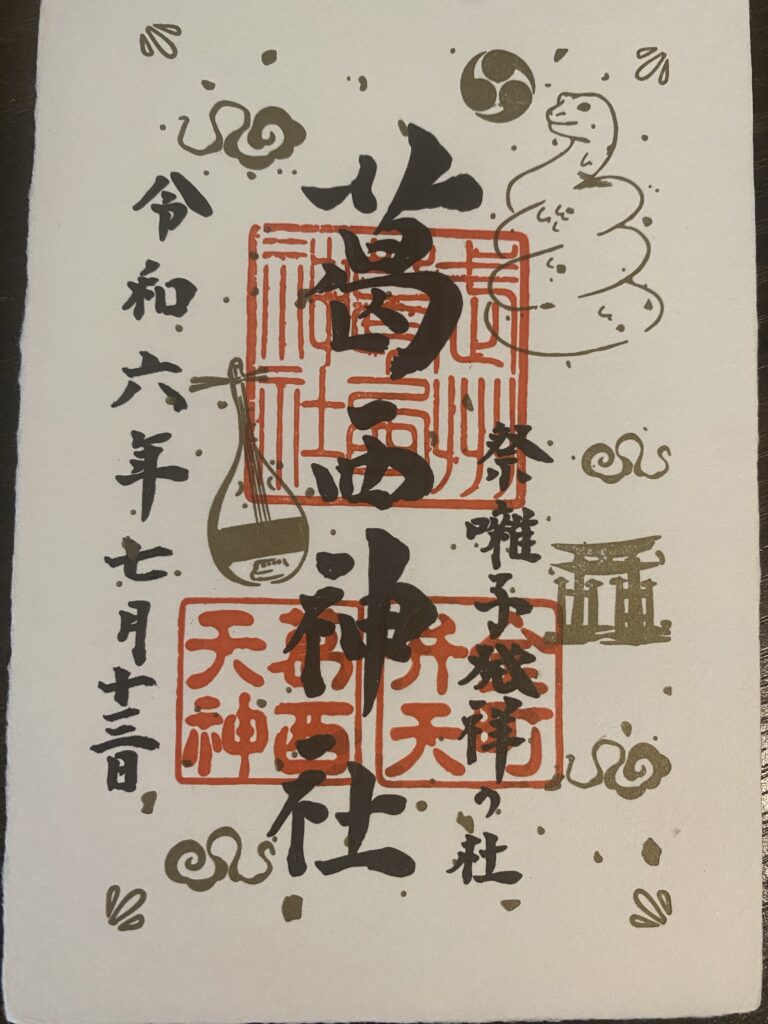 祭囃子発祥の社
葛西神社
令和六年七月十三日
武州
葛西
神社
金町
弁天
葛西
天神